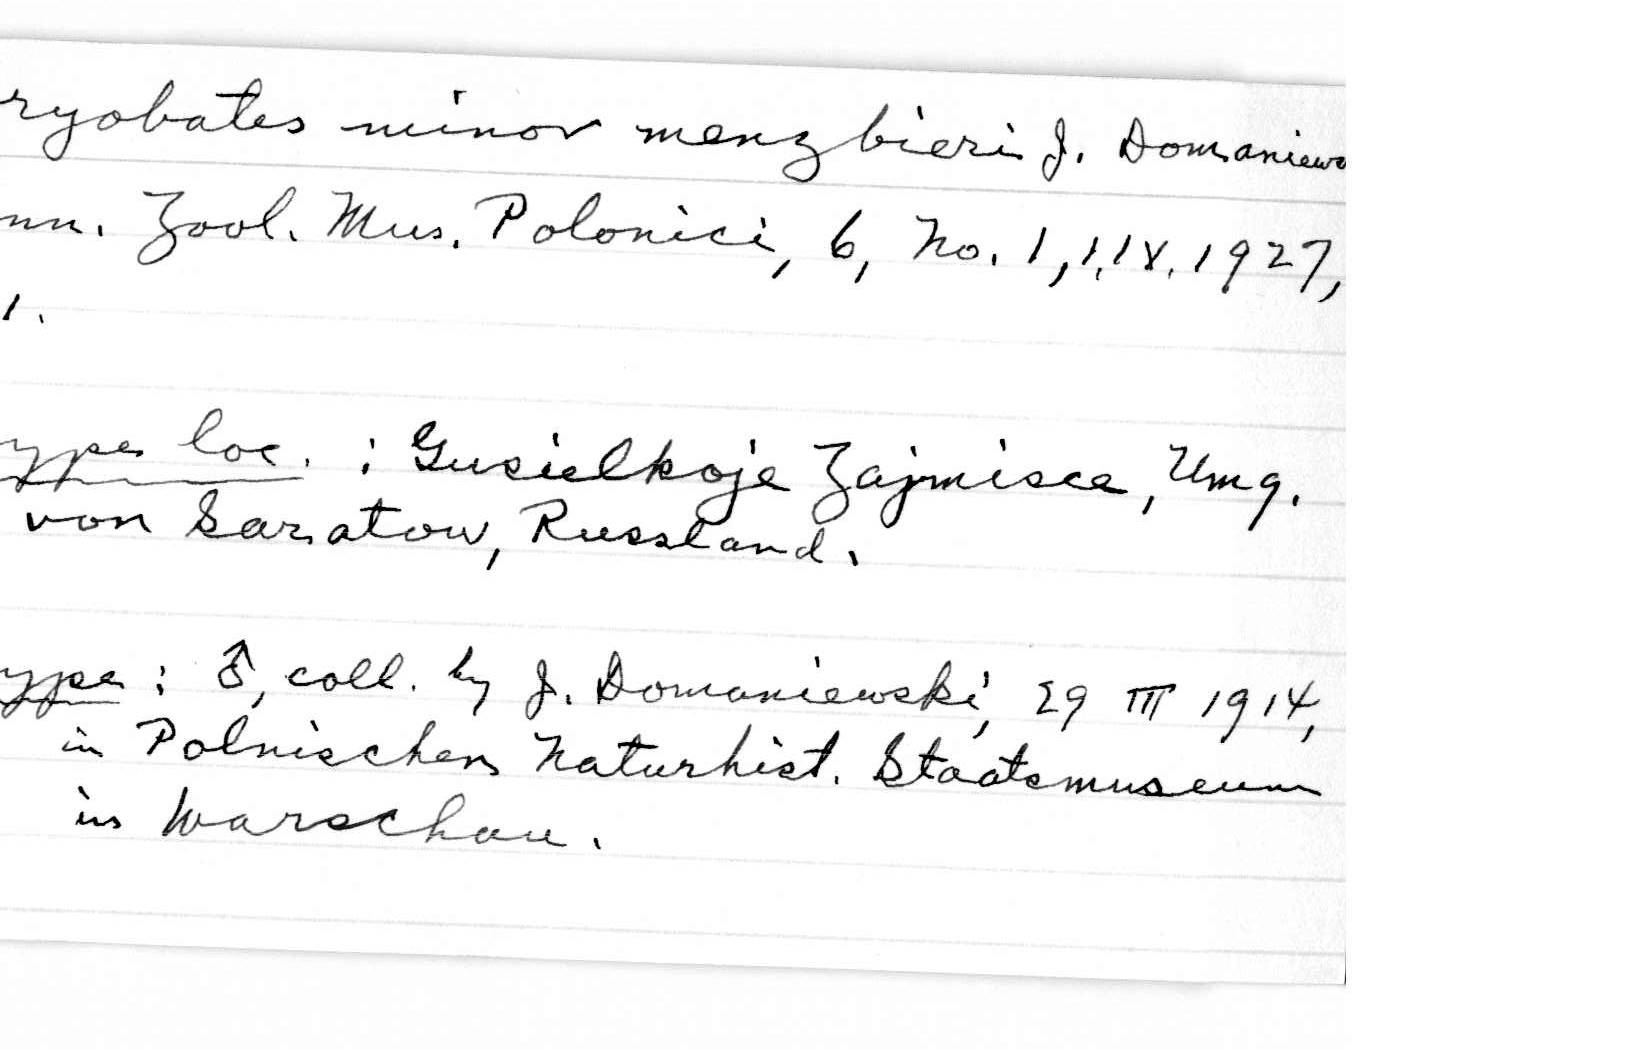 ryobates minor menzbieri J. Domaniews
nn. Zool. Mus. Polonici, 6, No. 1, 1.IX.1927,
1.
ype loc. : Gusielkoje Zajmisce, Umg.
von Saratow, Russland.
ype : ♂, coll. by J. Domaniewski, 29 III 1914,
in Polnischen Naturhist. Staatsmuseum
in Warschau.